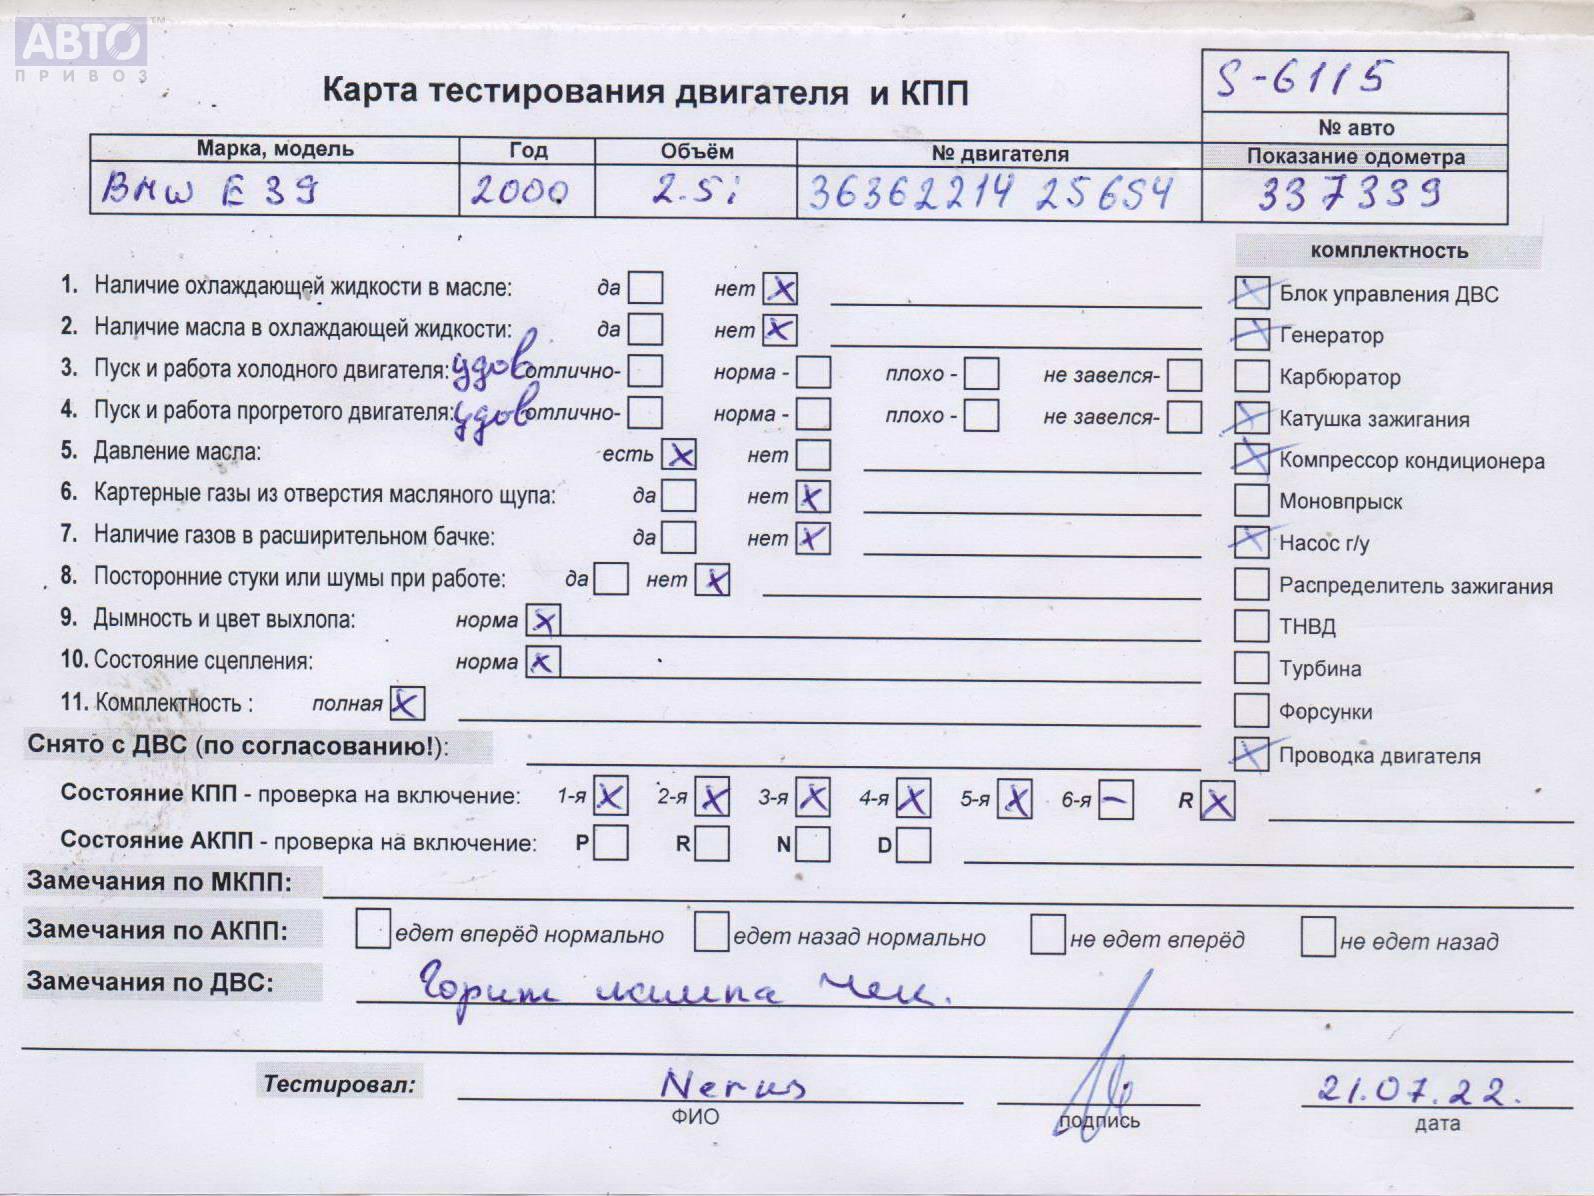 АВТО™
ПРИВОЗ
Карта тестирования двигателя и КПП
S-6115
№ авто
Марка, модель Год Объём № двигателя Показание одометра
BMW E39 2000 2.5i 36362214 256S4 337339
комплектность
1. Наличие охлаждающей жидкости в масле: да нет X
Блок управления ДВС
2. Наличие масла в охлаждающей жидкости: да нет X
Генератор
3. Пуск и работа холодного двигателя: удов отлично- норма - плохо - не завелся-
Карбюратор
4. Пуск и работа прогретого двигателя: удов отлично- норма - плохо - не завелся-
Катушка зажигания
5. Давление масла: есть X нет
Компрессор кондиционера
6. Картерные газы из отверстия масляного щупа: да нет X
Моновпрыск
7. Наличие газов в расширительном бачке: да нет X
Насос г/у
8. Посторонние стуки или шумы при работе: да нет X
Распределитель зажигания
9. Дымность и цвет выхлопа: норма X
ТНВД
10. Состояние сцепления: норма X
Турбина
11. Комплектность : полная X
Форсунки
Снято с ДВС (по согласованию!):
Проводка двигателя
Состояние КПП - проверка на включение: 1-я X 2-я X 3-я X 4-я X 5-я X 6-я – R X
Состояние АКПП - проверка на включение: P R N D
Замечания по МКПП:
Замечания по АКПП: едет вперёд нормально едет назад нормально не едет вперёд не едет назад
Замечания по ДВС: Горит лампа Чек.
Тестировал: 21.07.22.
ФИО подпись дата